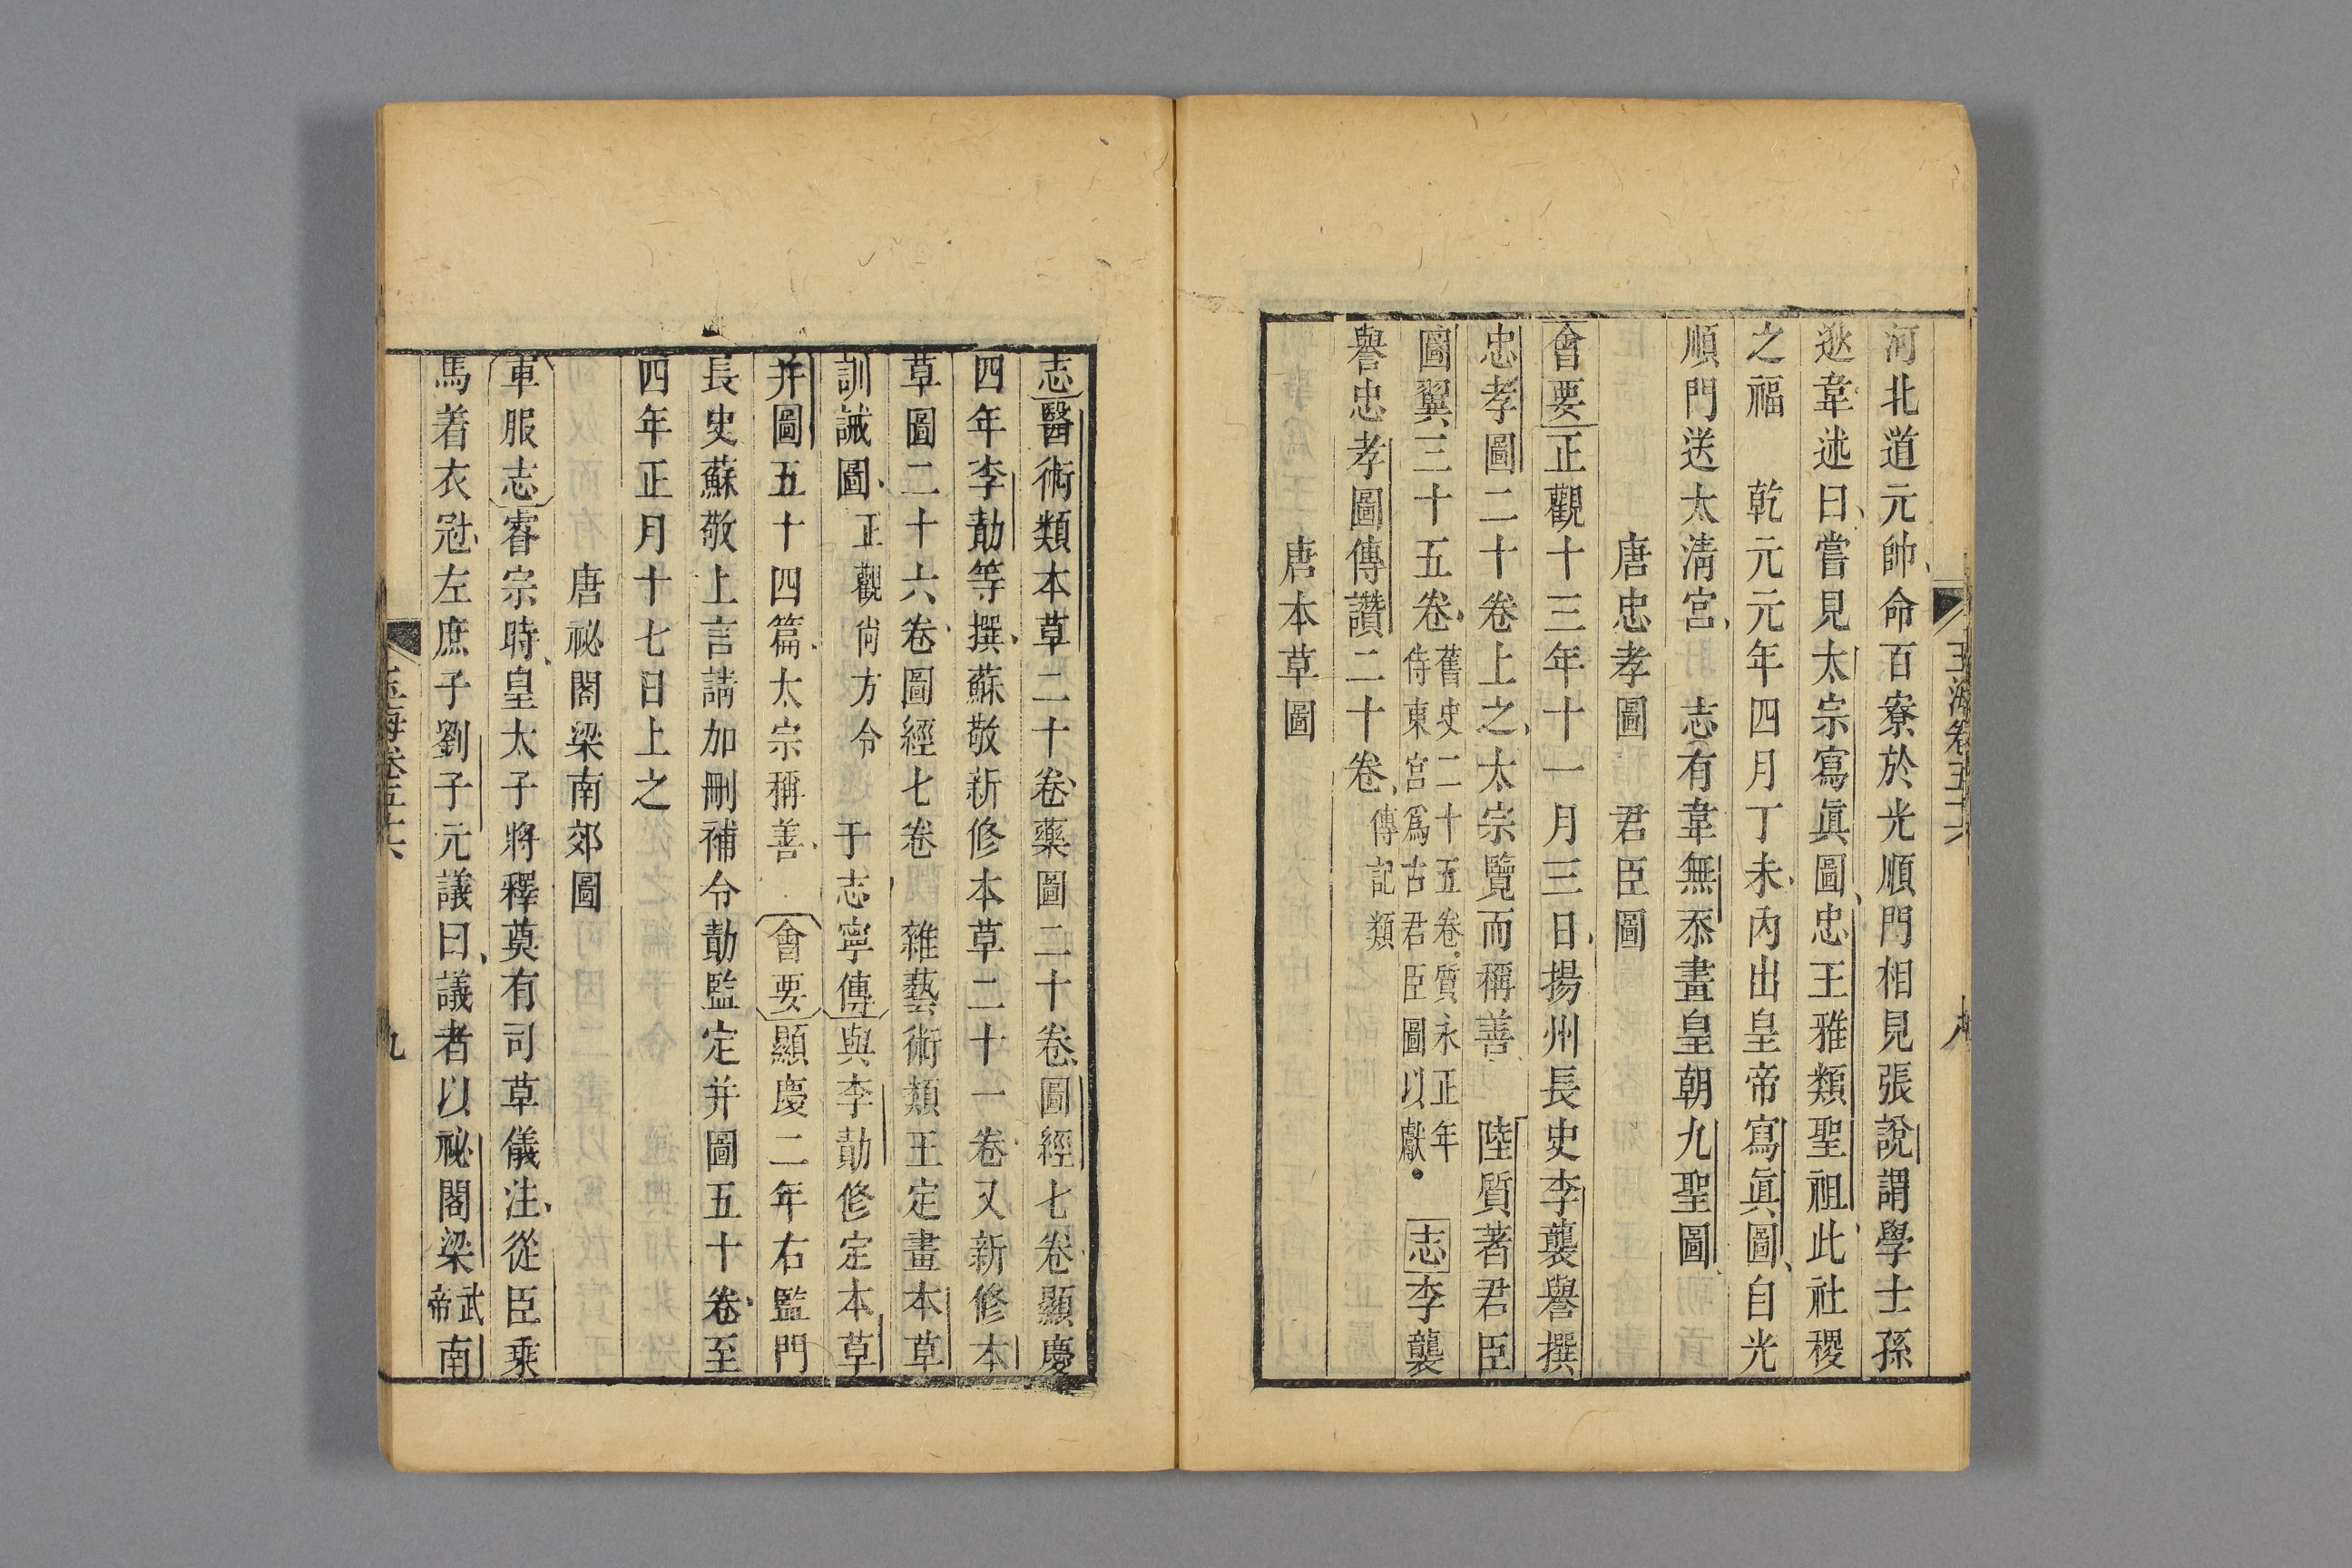 河北道元帥命百寮於光順門相見張說謂學士孫
逖韋述曰嘗見太宗寫眞圖忠王雅類聖祖此社稷
之福　乾元元年四月丁未內出皇帝寫眞圖自光
順門送太淸宮　志有韋無忝畫皇朝九聖圖
唐忠孝圖　君臣圖
會要正觀十三年十一月三日揚州長史李襲譽撰
忠孝圖二十卷上之太宗覽而稱善　陸質著君臣
圖翼三十五卷舊史二十五卷質永正年侍東宮爲古君臣圖以獻　志李襲
譽忠孝圖傳讚二十卷傳記類
唐本草圖
玉海卷五十六
志醫術類本草二十卷藥圖二十卷圖經七卷顯慶
四年李勣等撰蘇敬新修本草二十一卷又新修本
草圖二十六卷圖經七卷　雜藝術類王定畫本草
訓誡圖正觀尙方令　于志寧傳與李勣修定本草
并圖五十四篇太宗稱善　會要顯慶二年右監門
長史蘇敬上言請加刪補令勣監定并圖五十卷至
四年正月十七日上之
唐祕閣梁南郊圖
車服志睿宗時皇太子將釋奠有司草儀注從臣乘
馬着衣冠左庶子劉子元議曰議者以祕閣梁武帝南
玉海卷五十六
九